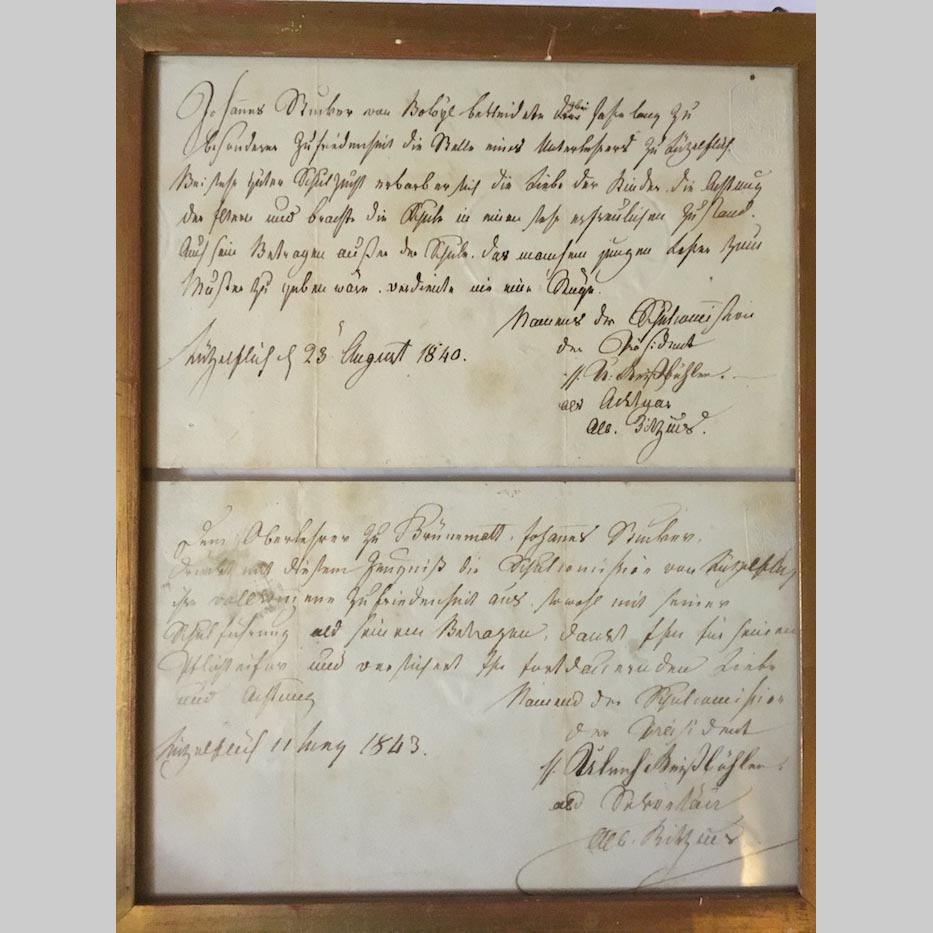 Johannes Stucker von Bowyl bekleidete drei Jahre lang zu
besonderer Zufriedenheit die Stelle eines Unterlehrers zu Lützelflüh.
Bei sehr guter Schulzucht erwarb er sich die Liebe der Kinder, die Achtung
der Eltern und brachte die Schule in einen sehr erfreulichen Zustand.
Auch sein Betragen außer der Schule, das manchem jungen Lehrer zum
Muster zu geben wäre, verdiente nie eine Rüge.
Namens der Schulcomission
der Präsident
als Actuar
Alb. Bitzius.
Lützelflüh d 23 August 1840.
Dem Oberlehrer zu Brünematt, Johannes Stucker,
drückt mit diesem Zeugniß die Schulcomission von Lützelflüh
ihre vollkommene Zufriedenheit aus, sowohl mit seiner
Schulführung als seinem Betragen, dankt Ihm für seinen
Pflichteifer und versichert Ihn fortdauernden Liebe
und Achtung
Namens der Schulcomission
der Präsident
Lützelflüh 11 May 1843.
als Sekretair
Alb. Bitzius